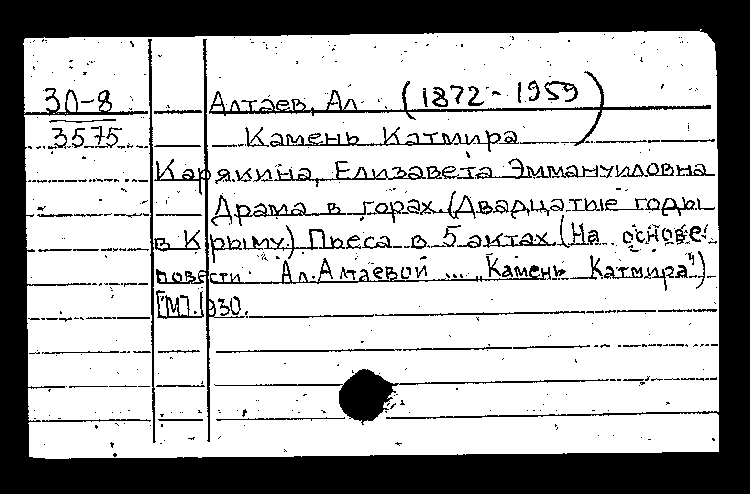 30-8 Алтаев, Ал. (1872-1959)
3575 Камень Катмира
Карякина, Елизавета Эммануиловна
Драма в горах. (Двадцатые годы
в Крыму) Пьеса в 5 актах. (На основе
повести Ал. Алтаевой ... "Камень Катмира")
[М]. 1930.